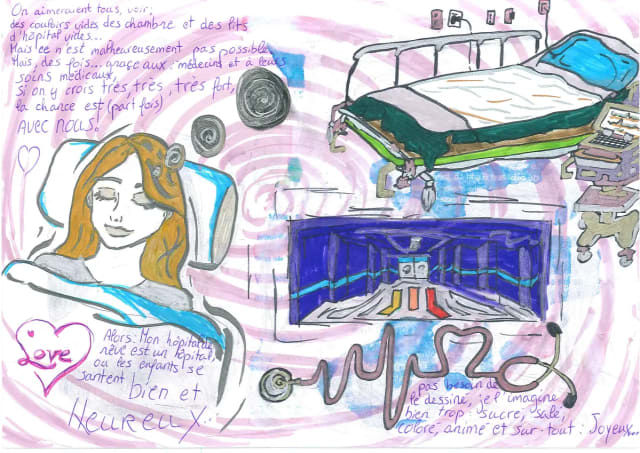 On aimeraient tous, voir;
des couloirs vides des chambre et des lits
d'hôpital vides...
Mais ce n'est malheureusement pas possible
Mais, des fois... graçe aux: médecins et à leurs
soins médicaux,
si on y crois très très, très fort,
la chance est (part fois)
AVEC NOUS!
Love
Alors: Mon hôpital de
rêve est un hôpital,
ou les enfants se
santent bien et
Heureux...
pas besoin de
le dessiné, je l'imagine
bien trop: sucré, salé,
coloré, animé et sur-tout: Joyeux...